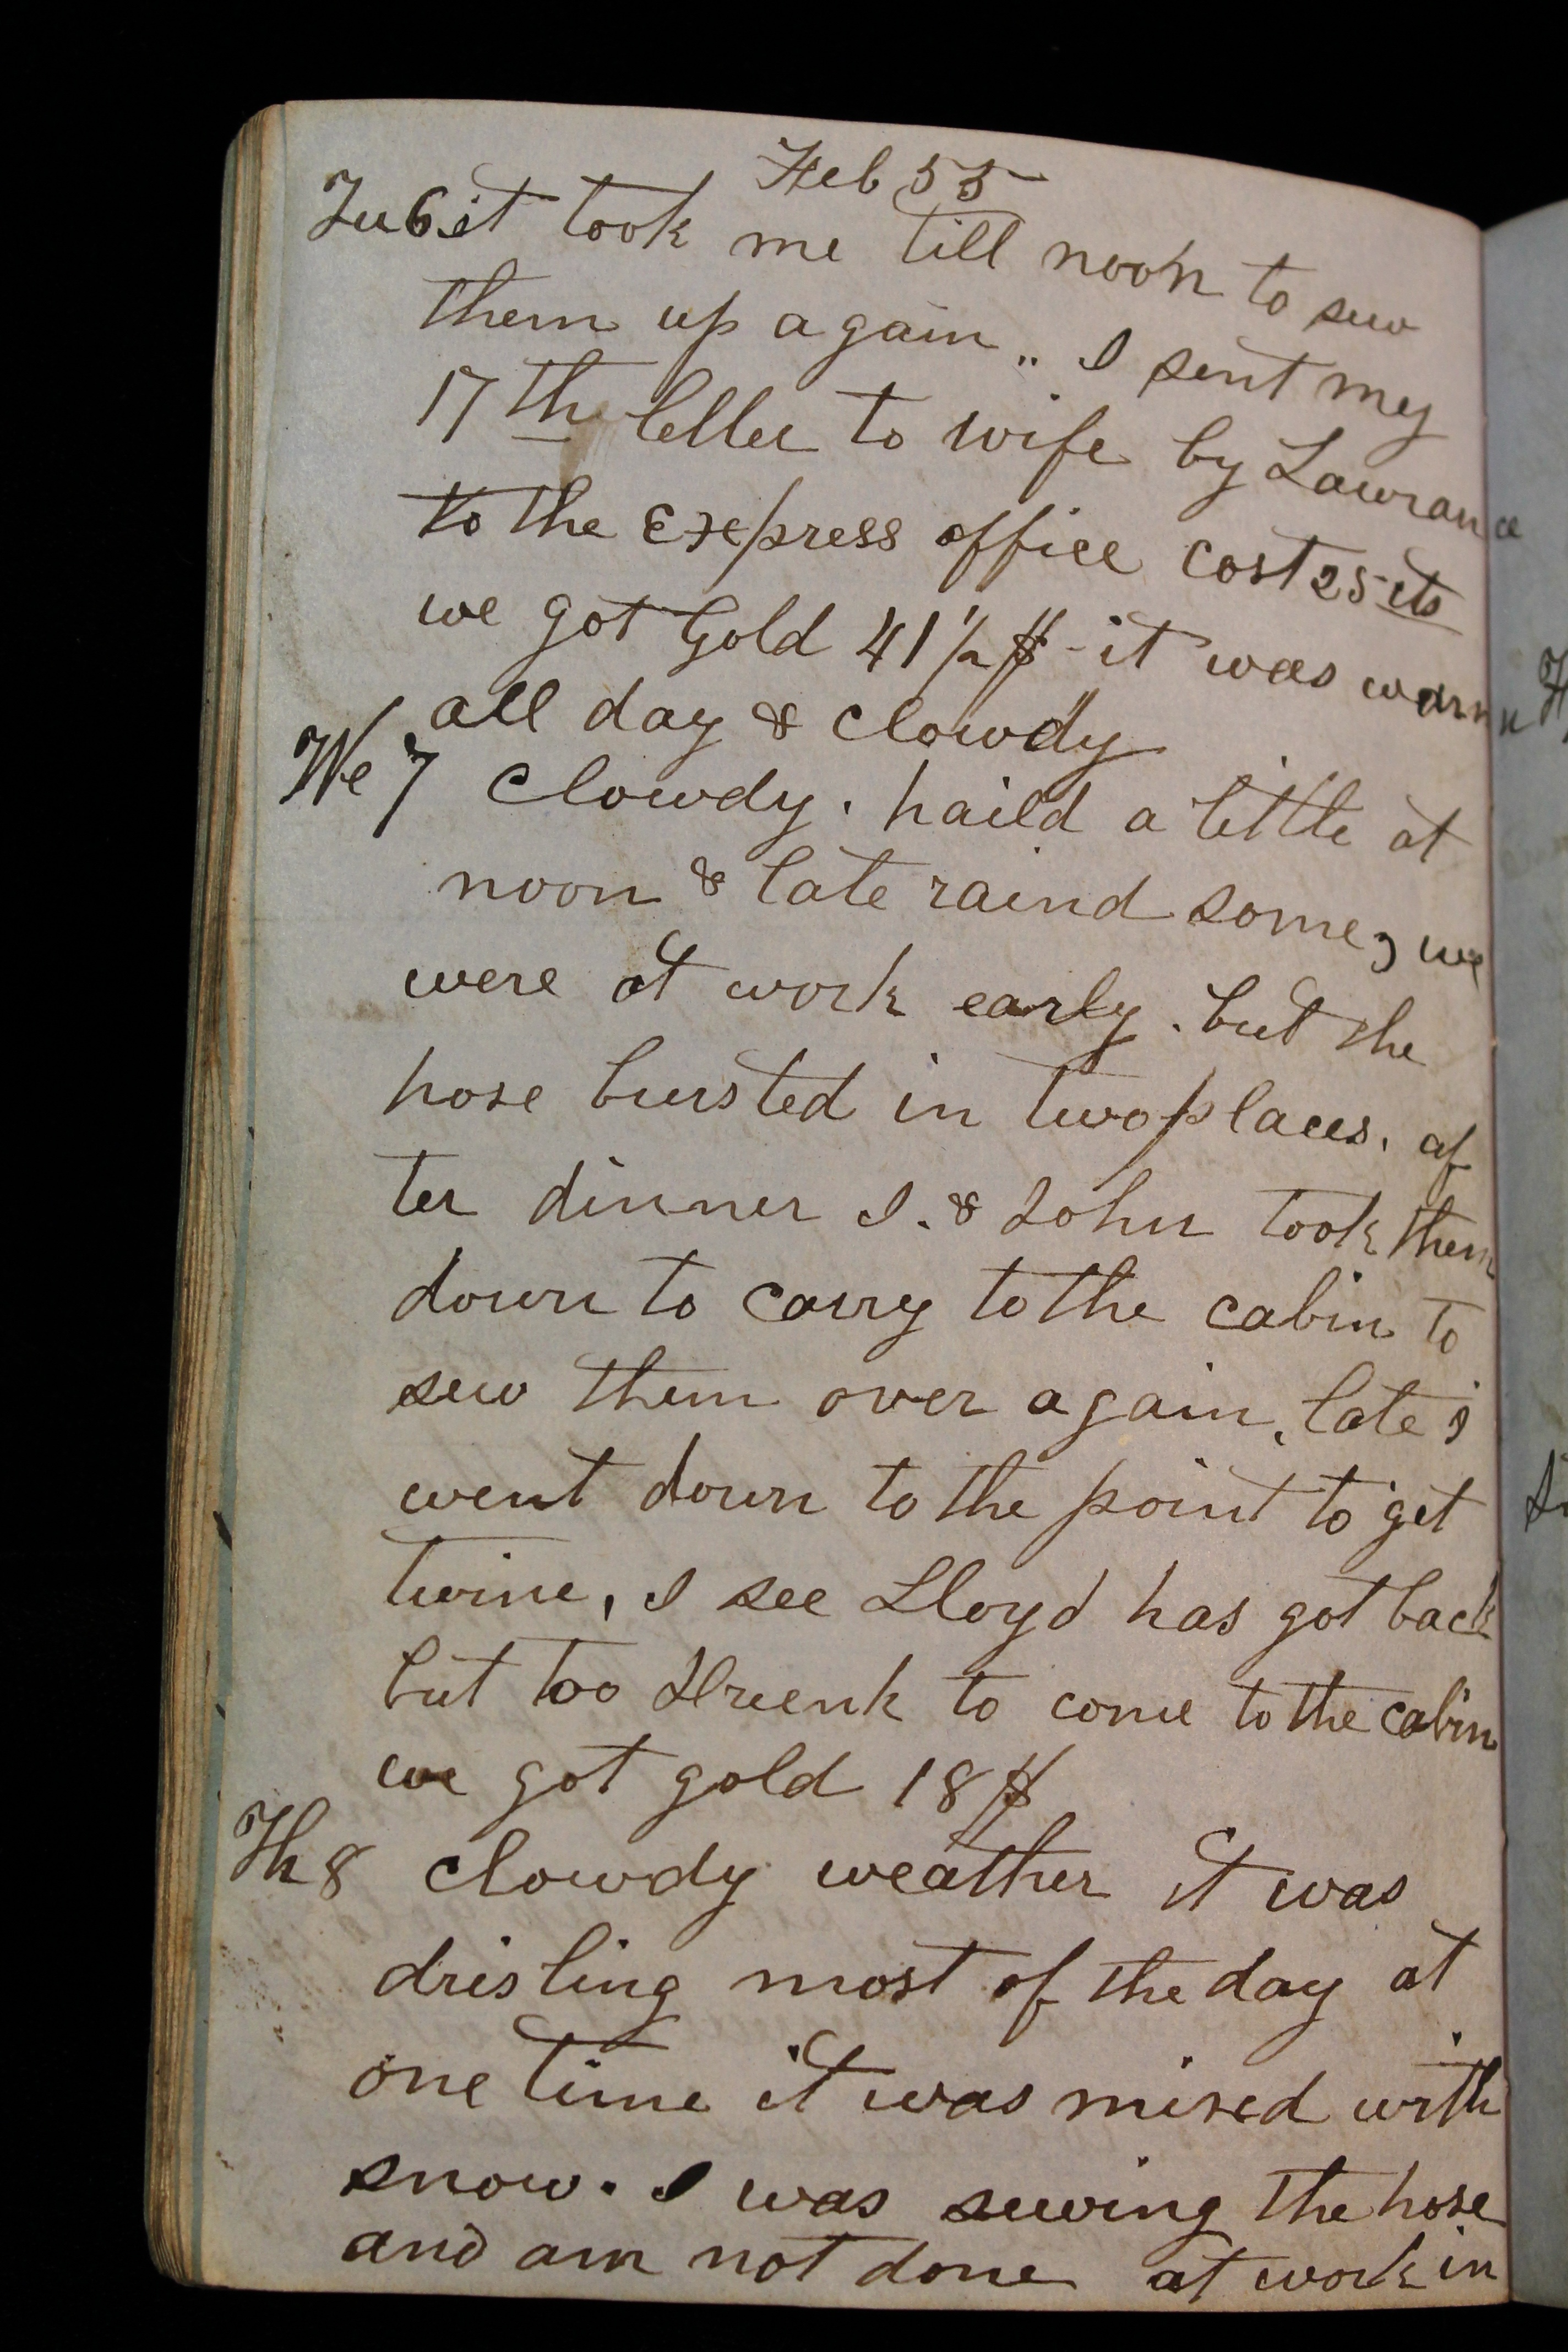 Feb 55
Tu 6 it took me till noon to sew
them up again .. I sent my
17th letter to wife by Lawrance
to the Express office cost 25 cts
we got Gold 41 1/2 $ - it was warm
all day & clowdy
We 7 clowdy. haild a little at
noon & late raind some, we
were at work early. but the
hose bursted in two places. af
ter dinner I. & John took them
down to carry to the cabin to
sew them over again, late I
went down to the point to get
twine, I see Lloyd has got back
but too Drunk to come to the cabin
we got gold 18 $
Th 8 clowdy weather it was
drisling most of the day at
one time it was mixed with
snow. I was sewing the hose
and am not done at work in